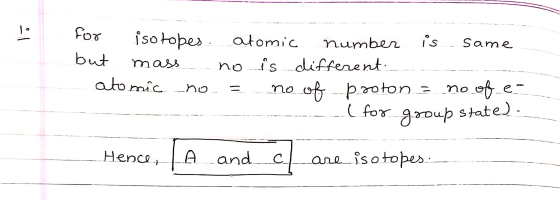 1.
For isotopes. atomic number is same
but mass no is different.
atomic no = no of proton = no of e-
(for group state).
Hence, A and C are isotopes.